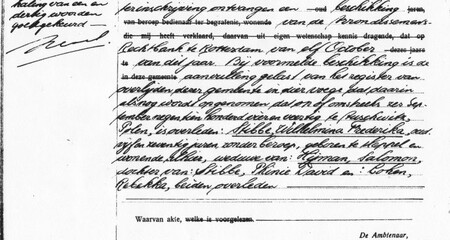 haling van een en
dertig woorden
goedgekeurd
ter inschrijving ontvangen en oud beschikking jaren,
van beroep bedienaar ter begrafenis, wonende van de Arrondissements-
die mij heeft verklaard, daarvan uit eigen wetenschap kennis dragende, dat op
Rechtbank te Rotterdam van elf October deses jaars
van dit jaar. Bij voormelde beschikking is de
in deze gemeente aanvulling gelast van het register van
overlijden dezer gemeente in dier voege, dat daarin
alsnog wordt opgenomen dat op of omstreeks zes Sep-
tember negentienhonderd twee en veertig te Auschwitz,
Polen, is overleden: Stibbe, Wilhelmina Frederika, oud
vijf en zeventig jaren, zonder beroep, geboren te Meppel en
wonende alhier, weduwe van: Hijman, Salomon,
dochter van: Stibbe, Phinie David en: Cohen,
Rebekka, beiden overleden
Waarvan akte, welke is voorgelezen.
De Ambtenaar,